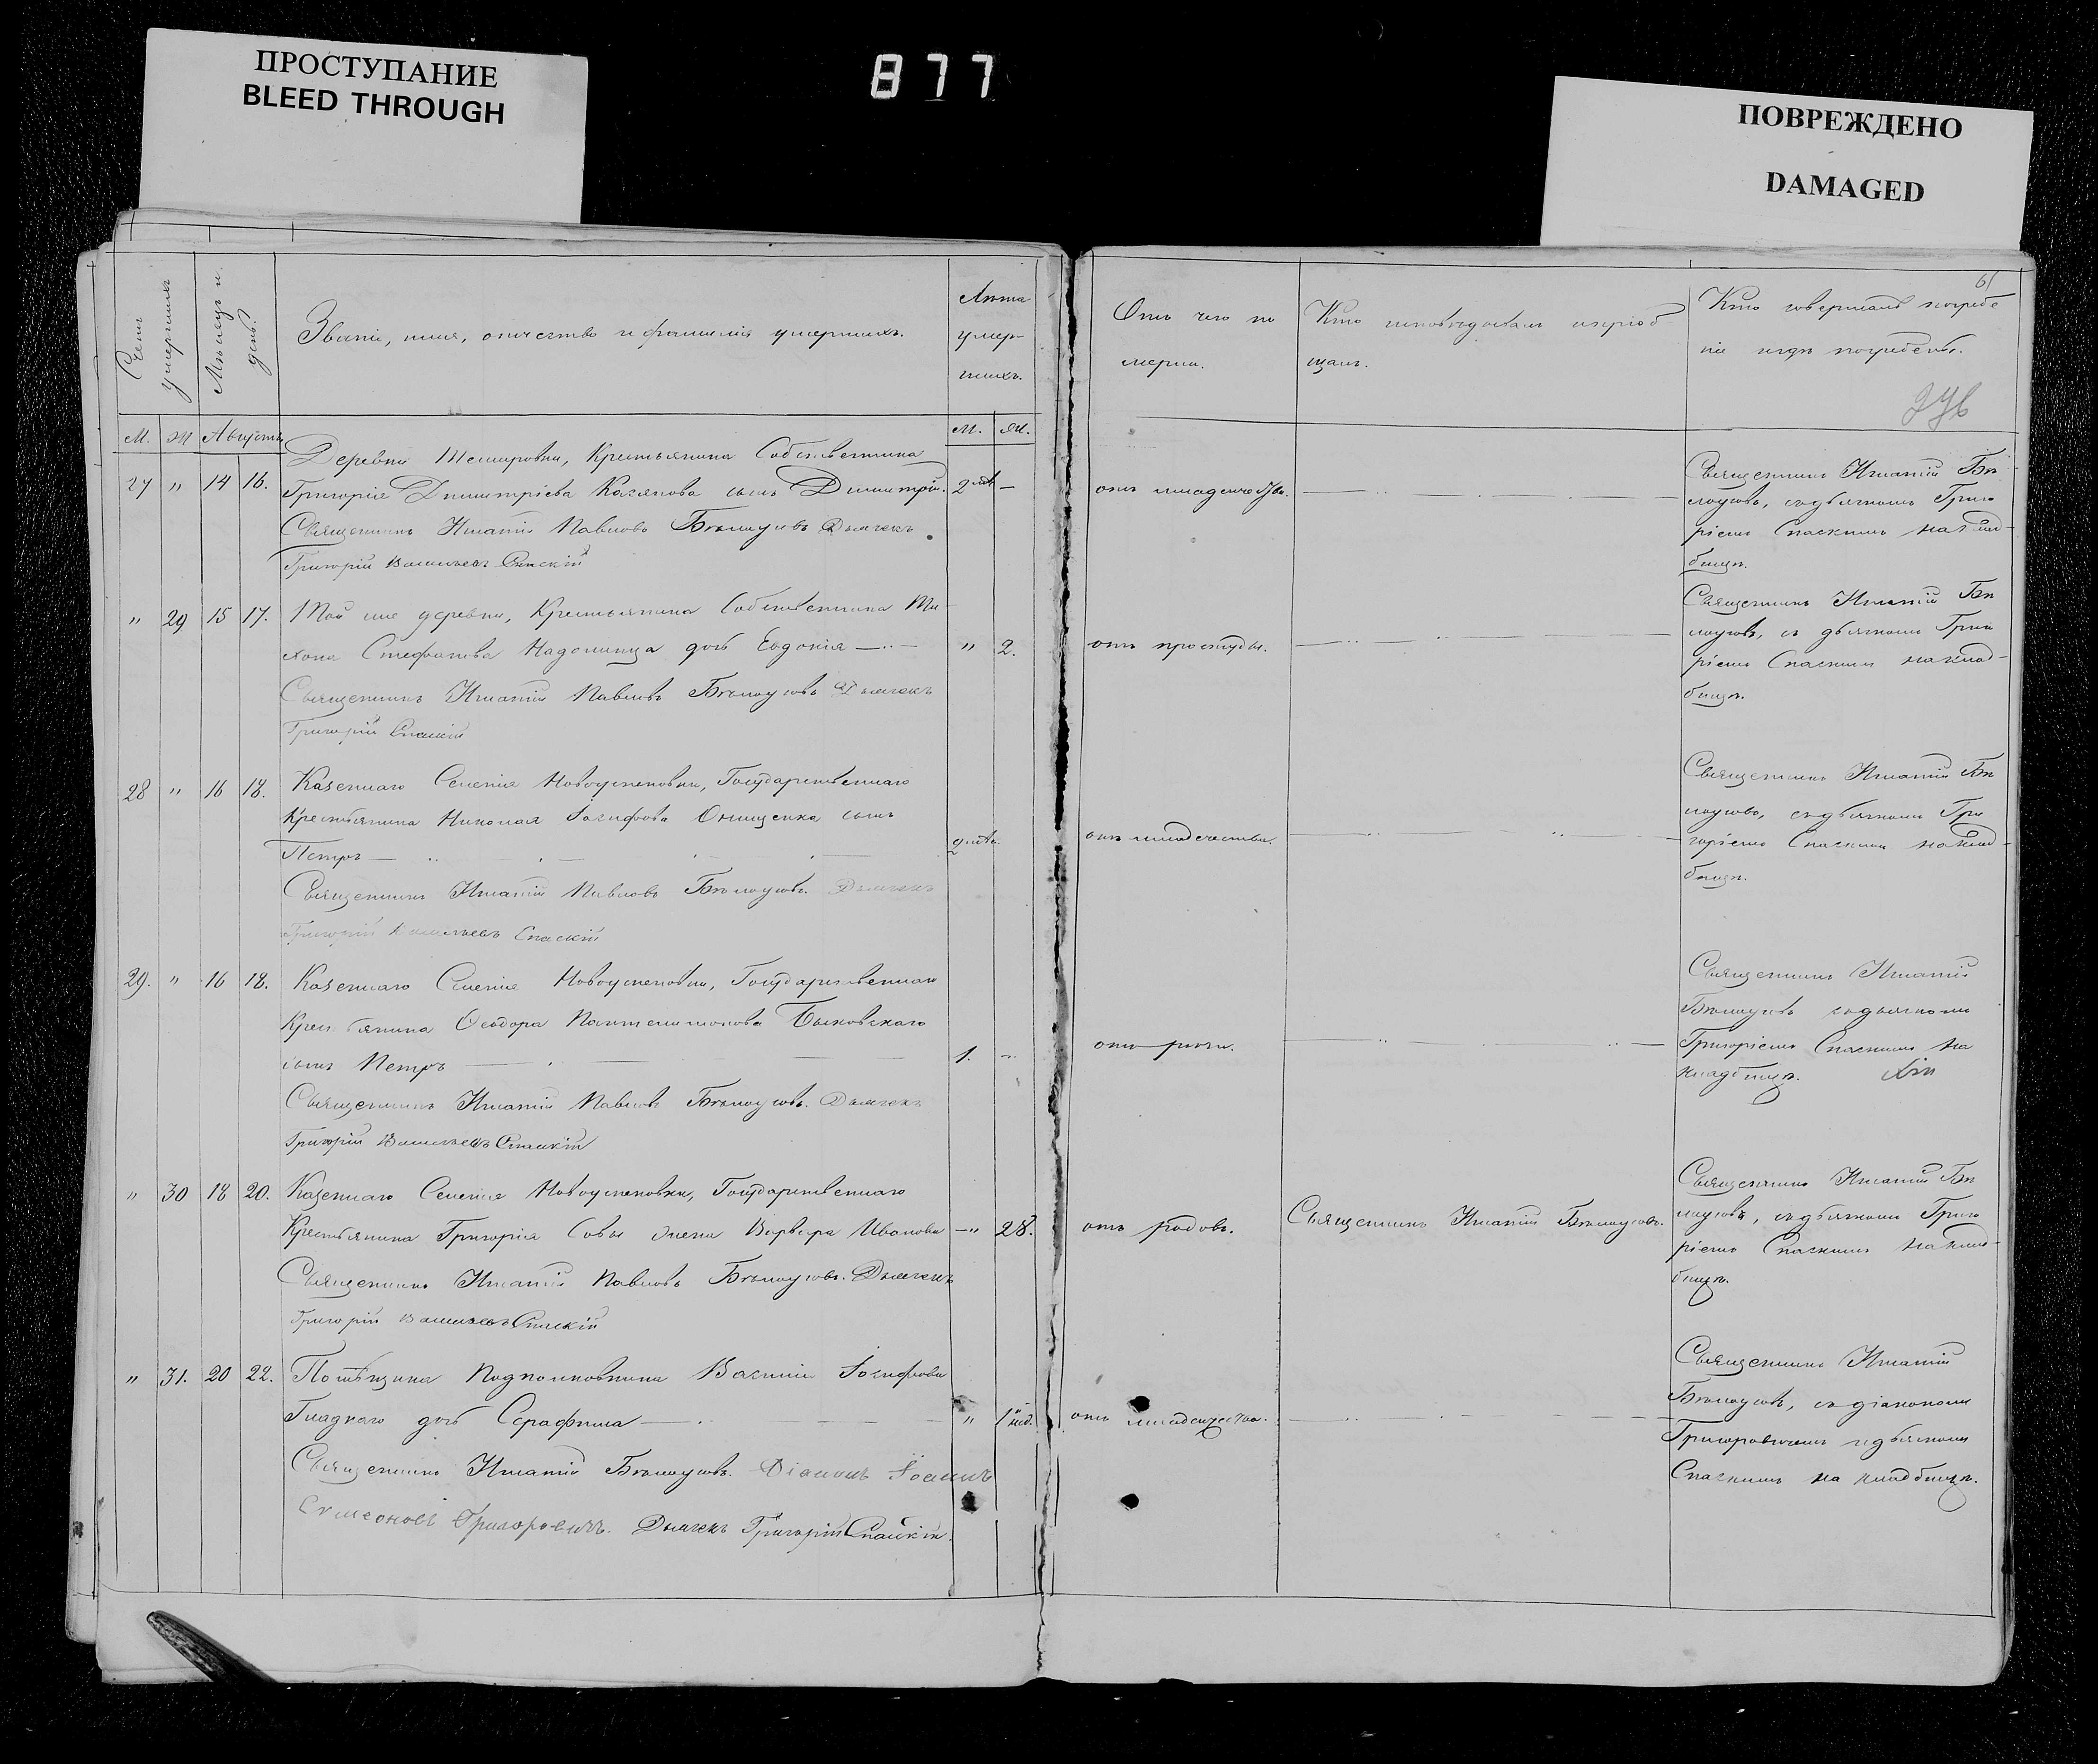 ПРОСТУПАНИЕ
BLEED THROUGH
877
ПОВРЕЖДЕНО
DAMAGED
Счетъ умершихъ
Мѣсяцъ и день.
Званіе, имя, отчество и фамилія умершихъ.
Лѣта
умер-
шихъ.
М. Ж Августъ
М. Ж.
Деревни Темировки, Крестьянина Собственника
27 " 14 16. Григорія Дмитріева Касянова сынъ Димитрій. 2 –
Священникъ Игнатій Павловъ Бѣлоусовъ Дьячекъ
Григорій Васильевъ Спаскій
" 29 15 17. Той же деревни, Крестьянина Собственника Ти-
хона Стефанова Надолинца дочь Евдокія " 2.
Священникъ Игнатій Павловъ Бѣлоусовъ Дьячекъ
Григорій Спаскій
28 " 16 18. Казеннаго Селенія Новоуспеновки, Государственнаго
Крестьянина Николая Іосифова Онищенка сынъ
Петръ
Священникъ Игнатій Павловъ Бѣлоусовъ. Дьячекъ
Григорій Васильевъ Спаскій
29. " 16 18. Казеннаго Селенія Новоуспеновки, Государственнаго
Крестьянина Ѳеодора Пантелимонова Быковскаго
сынъ Петръ 1.
Священникъ Игнатій Павловъ Бѣлоусовъ. Дьячекъ
Григорій Васильевъ Спаскій
" 30 18 20. Казеннаго Селенія Новоуспеновки, Государственнаго
Крестьянина Григорія Совы жена Варвара Иванова – " 28.
Священникъ Игнатій Павловъ Бѣлоусовъ. Дьячекъ
Григорій Васильевъ Спаскій
" 31. 20 22. Помѣщика Подполковника Василія Іосифова
Гладкаго дочь Серафима " 1 нед.
Священникъ Игнатій Бѣлоусовъ. Діаконъ Іоаннъ
Симеоновъ Григоровичъ. Дьячекъ Григорій Спаскій.
61
Отъ чего по
мерли.
Кто исповѣдовалъ и пріоб
щалъ.
Кто совершалъ погребе
ніе и гдѣ погребены.
отъ младенчества.
Священникъ Игнатій Бѣ
лоусовъ, съ дьячкомъ Григо
ріемъ Спаскимъ на клад-
бищѣ.
отъ простуды.
Священникъ Игнатій Бѣ
лоусовъ, съ дьячкомъ Григо
ріемъ Спаскимъ на клад-
бищѣ.
отъ младенчества.
Священникъ Игнатій Бѣ
лоусовъ, съ дьячкомъ Гри
горіемъ Спаскимъ на клад-
бищѣ.
Священникъ Игнатій
Бѣлоусовъ съ дьячкомъ
Григоріемъ Спаскимъ на
кладбищѣ.
отъ родовъ.
Священникъ Игнатій Бѣлоусовъ.
Священникъ Игнатій Бѣ
лоусовъ, съ дьячкомъ Григо
ріемъ Спаскимъ на клад-
бищѣ.
отъ младенчества.
Священникъ Игнатій
Бѣлоусовъ, съ діакономъ
Григоровичемъ и дьячкомъ
Спаскимъ на кладбищѣ.